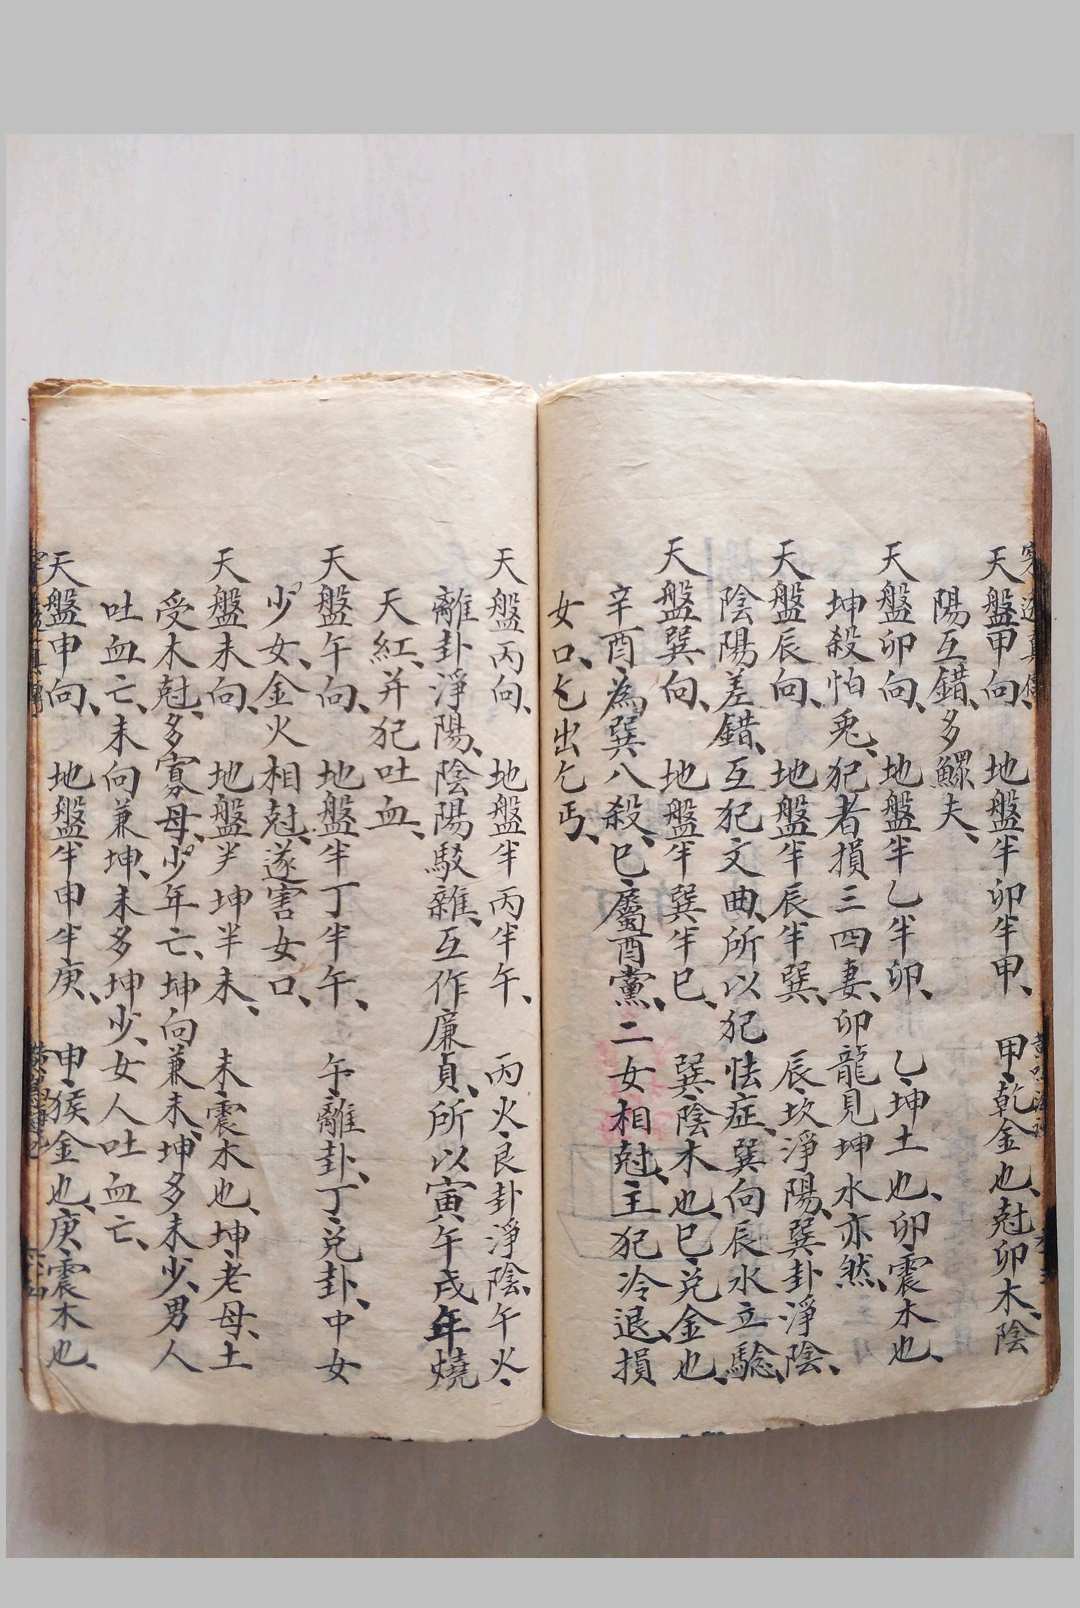 天盤甲向、地盤半卯半甲、甲乾金也、尅卯木、陰
陽互錯、多鰥夫、
天盤卯向、地盤半乙半卯、乙坤土也、卯震木也、
坤殺怕兎、犯者損三四妻、卯龍見坤水亦然、
天盤辰向、地盤半辰半巽、辰坎淨陽、巽卦淨陰、
陰陽差錯、互犯文曲、所以犯怯症、巽向辰水立驗、
天盤巽向、地盤半巽半巳、巽陰木也、巳兑金也、
辛酉為巽八殺、巳屬酉黨、二女相尅、主犯冷退、損
女口、乞出乞丐、
天盤丙向、地盤半丙半午、丙火艮卦淨陰、午火、
離卦淨陽、陰陽駁雜、互作廉貞、所以寅午戌年燒
天紅、并犯吐血、
天盤午向、地盤半丁半午、午離卦、丁兑卦、中女
少女、金火相尅、遂害女口、
天盤未向、地盤半坤半未、未震木也、坤老母、土
受木尅、多寡母、少年亡、坤向兼未、坤多未少、男人
吐血亡、未向兼坤、未多坤少、女人吐血亡、
天盤申向、地盤半申半庚、申猴金也、庚震木也、